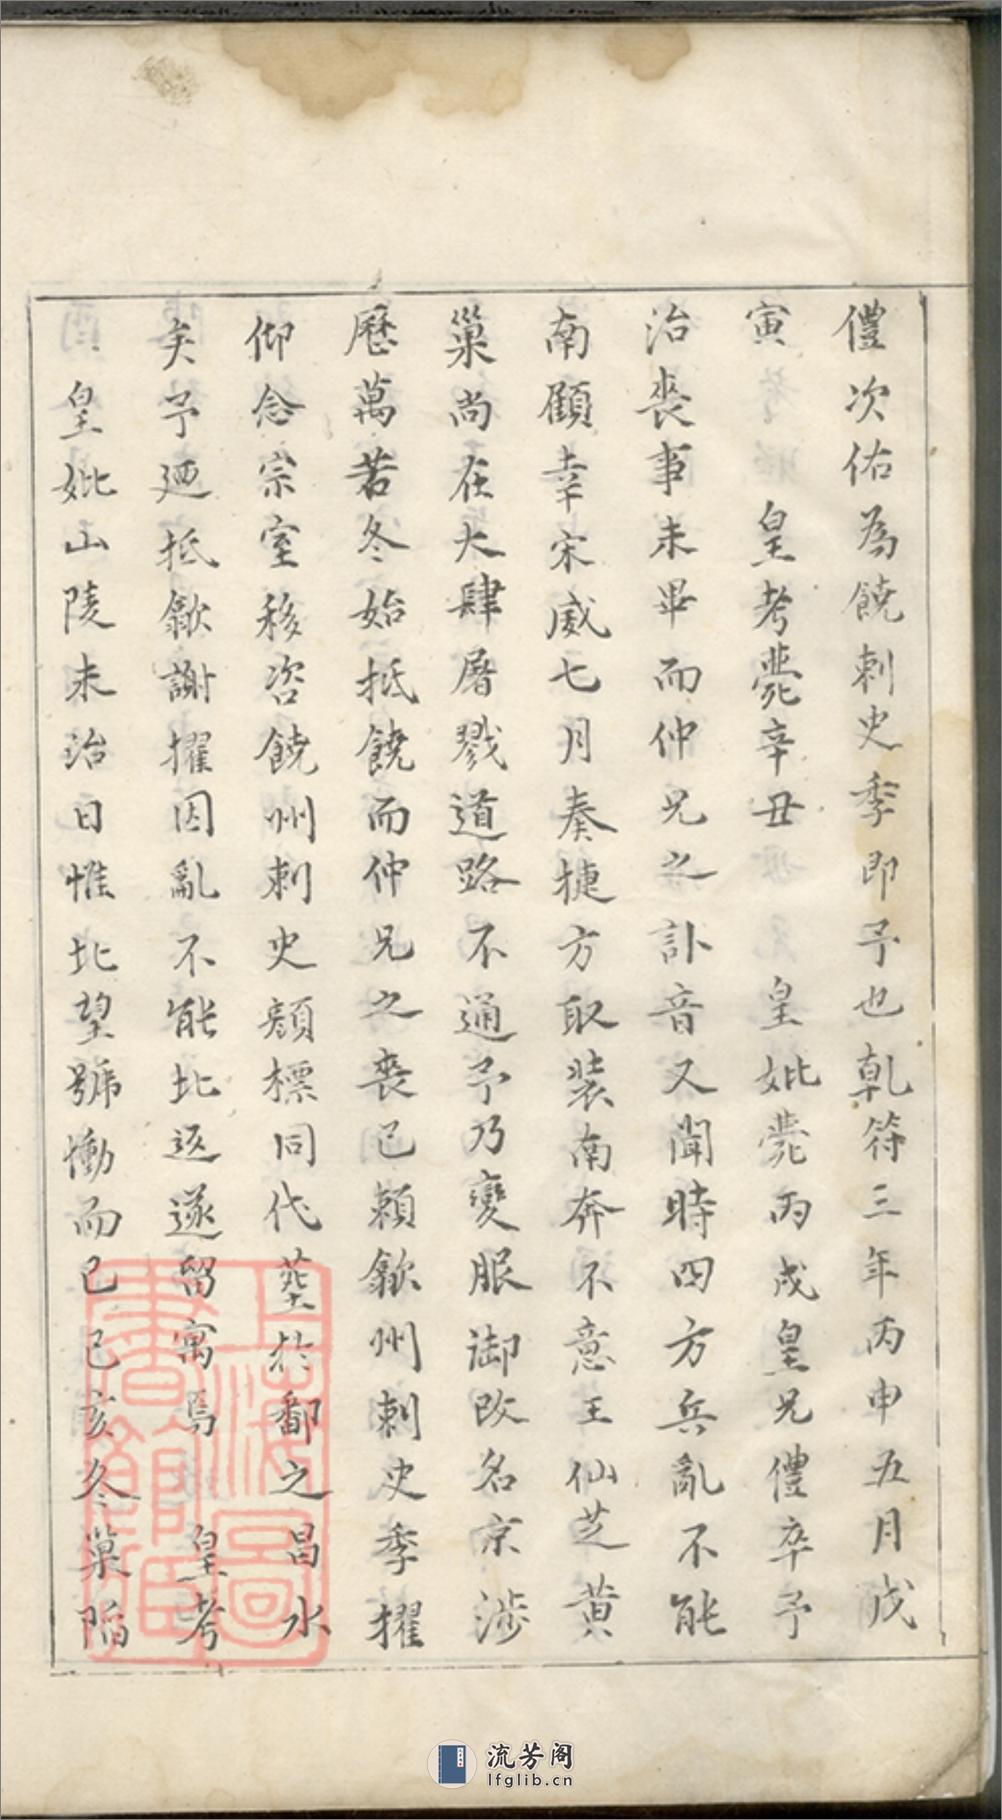 僼次佑為饒刺史季即予也乾符三年丙申五月戊
寅　皇考薨辛丑　皇妣薨丙戌皇兄僼卒予
治喪事未畢而仲兄之訃音又聞時四方兵亂不能
南顧幸宋威七月奏捷方取装南奔不意王仙芝黄
巢尚在大肆屠戮道路不通予乃變服御改名京渉
歷萬若冬始抵饒而仲兄之喪已頼歙州刺史季擢
仰念宗室移咨饒州刺史顔標同代塟於鄱之昌水
矣予廼抵歙謝擢因亂不能北返遂留寓焉　皇考
皇妣山陵未治日惟北望號慟而已己亥冬巢陷
上海圖書館藏
流芳阁
lfglib.cn